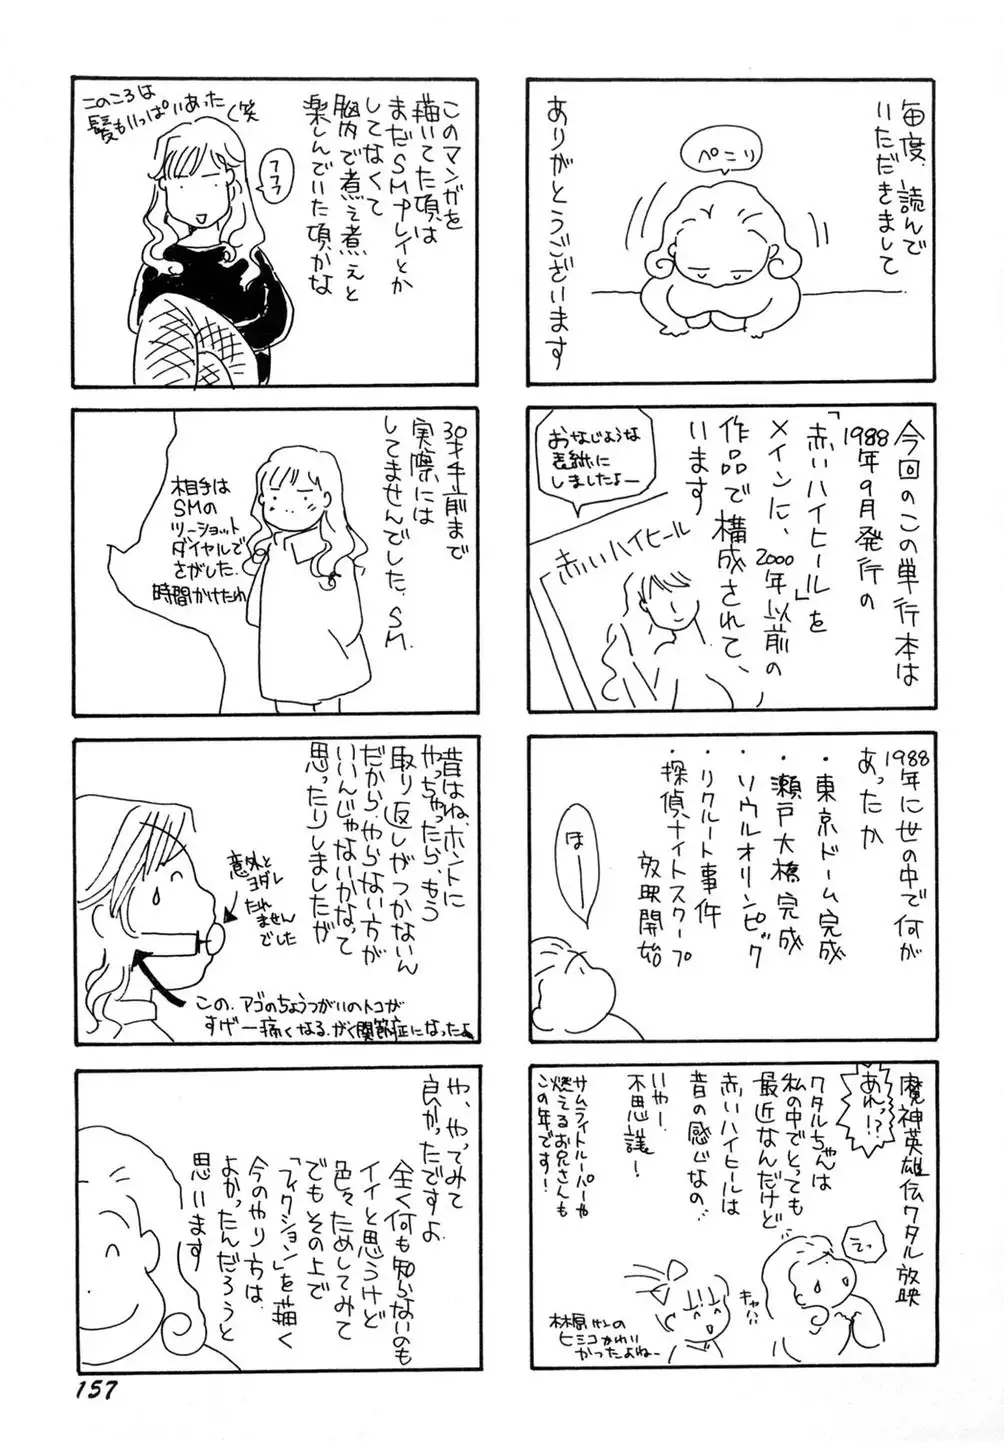 毎度、読んで
いただきまして
ありがとうございます
ペこり
今回のこの単行本は
1988年9月発行の
「赤いハイヒール」を
メインに、2000年以前の
作品で構成されて、
います
おなじような
表紙に
しましたよー
赤いハイヒール
1988年に世の中で何が
あったか
・東京ドーム完成
・瀬戸大橋完成
・ソウルオリンピック
・リクルート事件
・探偵ナイトスクープ
放映開始
ほー
魔神英雄伝ワタル放映
あれっ!?
ワタルちゃんは
私の中でとっても
最近なんだけど
赤いハイヒールは
昔の感じなの
いやー
不思議!
サムライトルーパーや
燃えるお兄さんも
この年です!
えっ
キャハ
林原サンの
ヒミコかわい
かったよねー
このマンガを
描いてた頃は
まだSMプレイとか
してなくて
脳内で煮え煮えと
楽しんでいた頃かな
このころは
髪もいっぱいあった(笑
フフフ
30才手前まで
実際には
してませんでした。SM
相手は
SMの
ツーショット
ダイヤルで
さがした.
時間かけたわ
昔はね、ホントに
やっちゃったら、もう
取り返しがつかないん
だから、やらない方が
いいんじゃないかなって
思ったりしましたが
意外と
ヨダレ
たれ
ません
でした
この、アゴのちょうつがいのトコが
すげー痛くなる.がく関節症になったよ
や、やってみて
良かったですよ
全く何も知らないのも
イイと思うけど
色々ためしてみて
でもその上で
「フィクション」を描く
今のやり方は
よかったんだろうと
思います
157